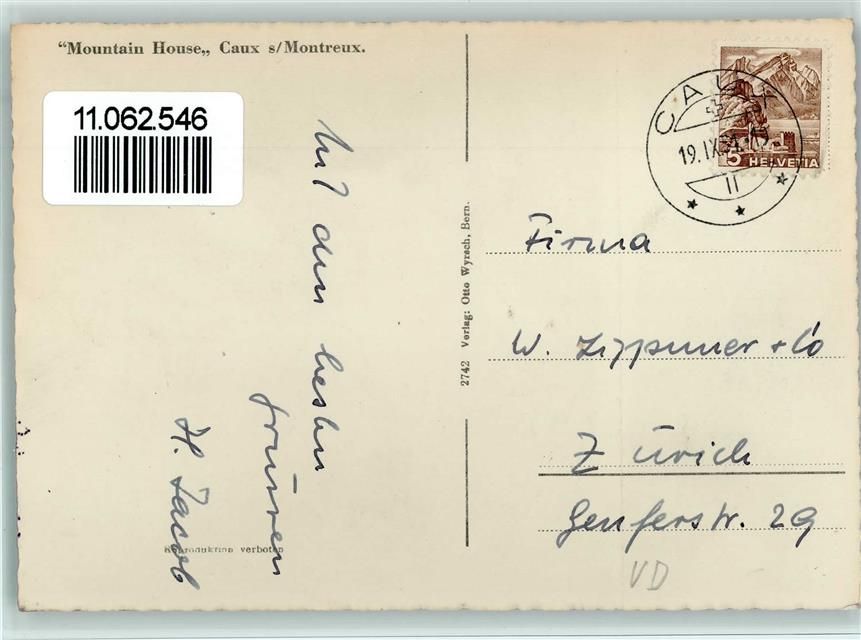 “Mountain House„ Caux s/Montreux.
11.062.546
Mit den besten
Grüssen
H. Jacob
Reproduktion verboten
2742 Verlag: Otto Wyrsch, Bern.
CAUX
19.IX.
5 HELVETIA
Firma
W. Zippuner + Co
Zürich
Genferstr. 29
VD